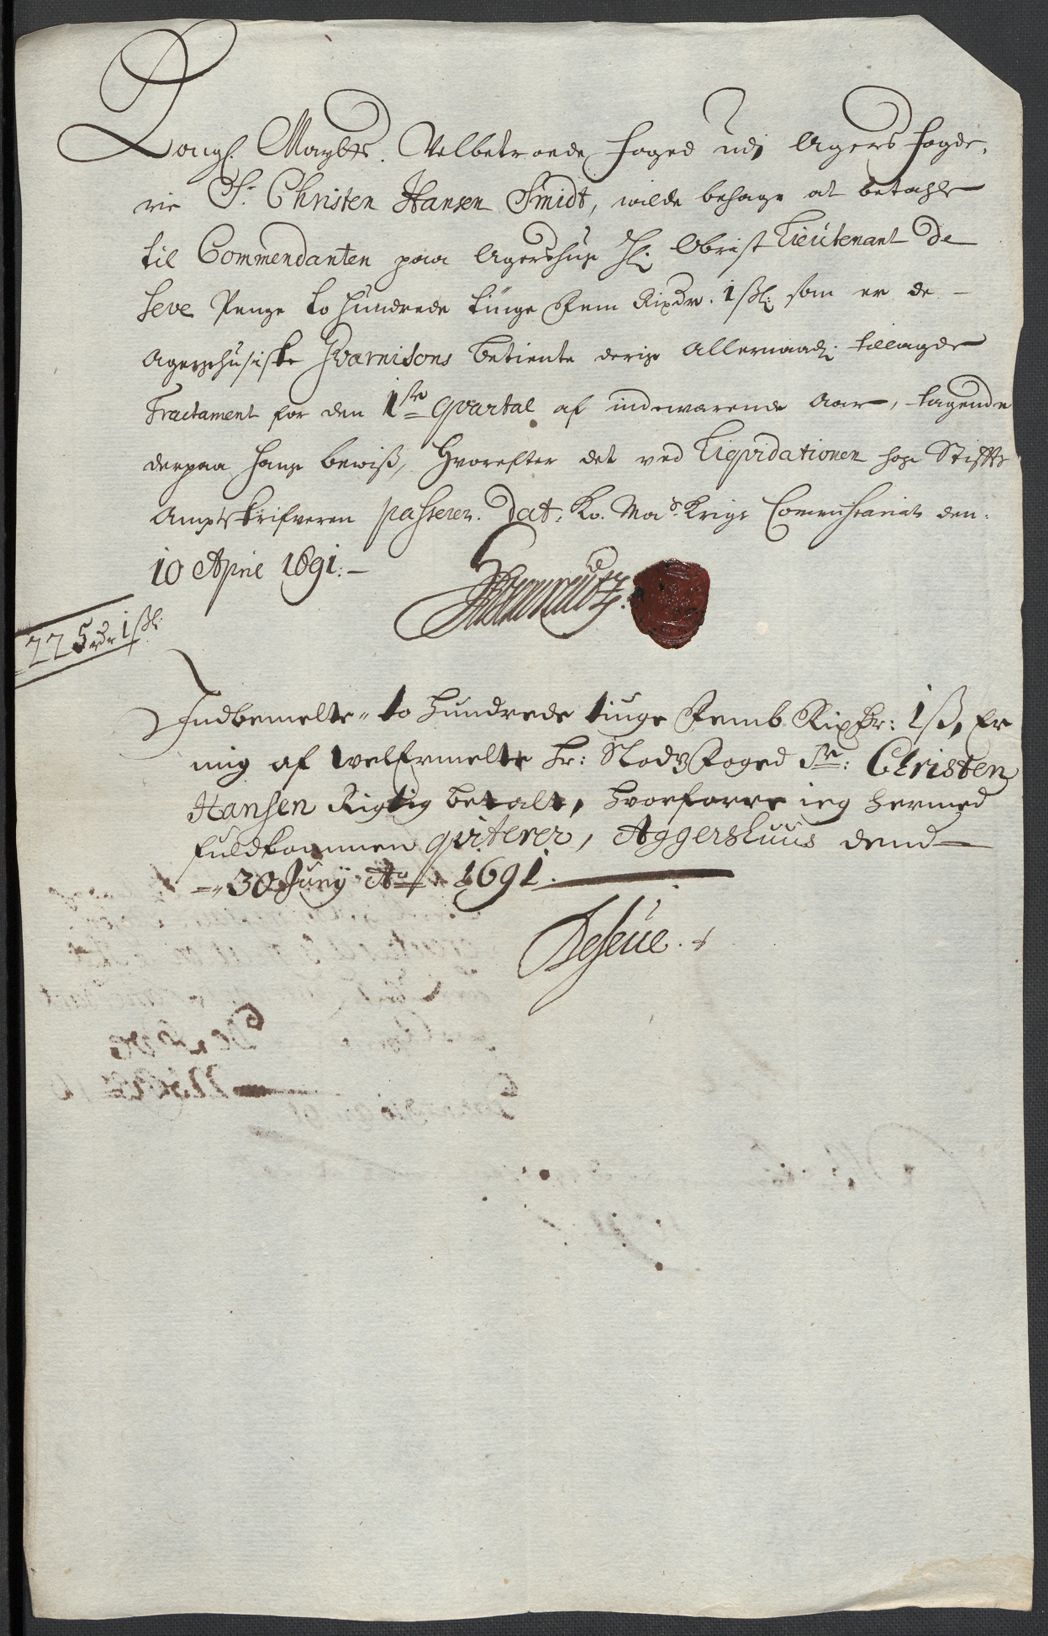 Kongl. Maytts. Velbetroede foged udi Agers fogde,
rie Sr. Christen Hansen Smidt, wilde behage at betahle
til Commendanten paa Agershus Hr. Obrist Lieutenant De
Seve Penge to hundrede tiuge Fem Rixdr. 1 ßl: som er de
Agershusiske Guarnisons betiente deris Allernaad: tillagde
Tractament for den 1ste Qvartal af indeværende Aar, tagende
derpaa hans bewiß, Hvorefter det ved Liqvidationen hos Stiffts
Amptskrifveren passerer. Dat, Ko. Mas. Krigs Commissariat den.
10 April 1691.
225 rdr 1 ßl:
Indbemelte to Hundrede tiuge Femb Rixdr: 1 ß, Er
mig af welErmelte Hr: Slods Foged Sr: Christen
Hansen Rigtig betalt, hvorforre ieg hermed
fuldkommen qviterer, Aggershuus dend
30 Juny Ao 1691.
DeSeue.